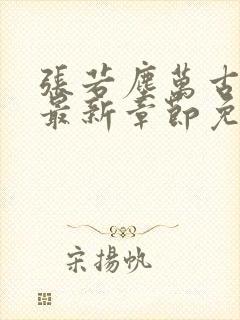 張若塵萬古
最新章節免
宋揚帆